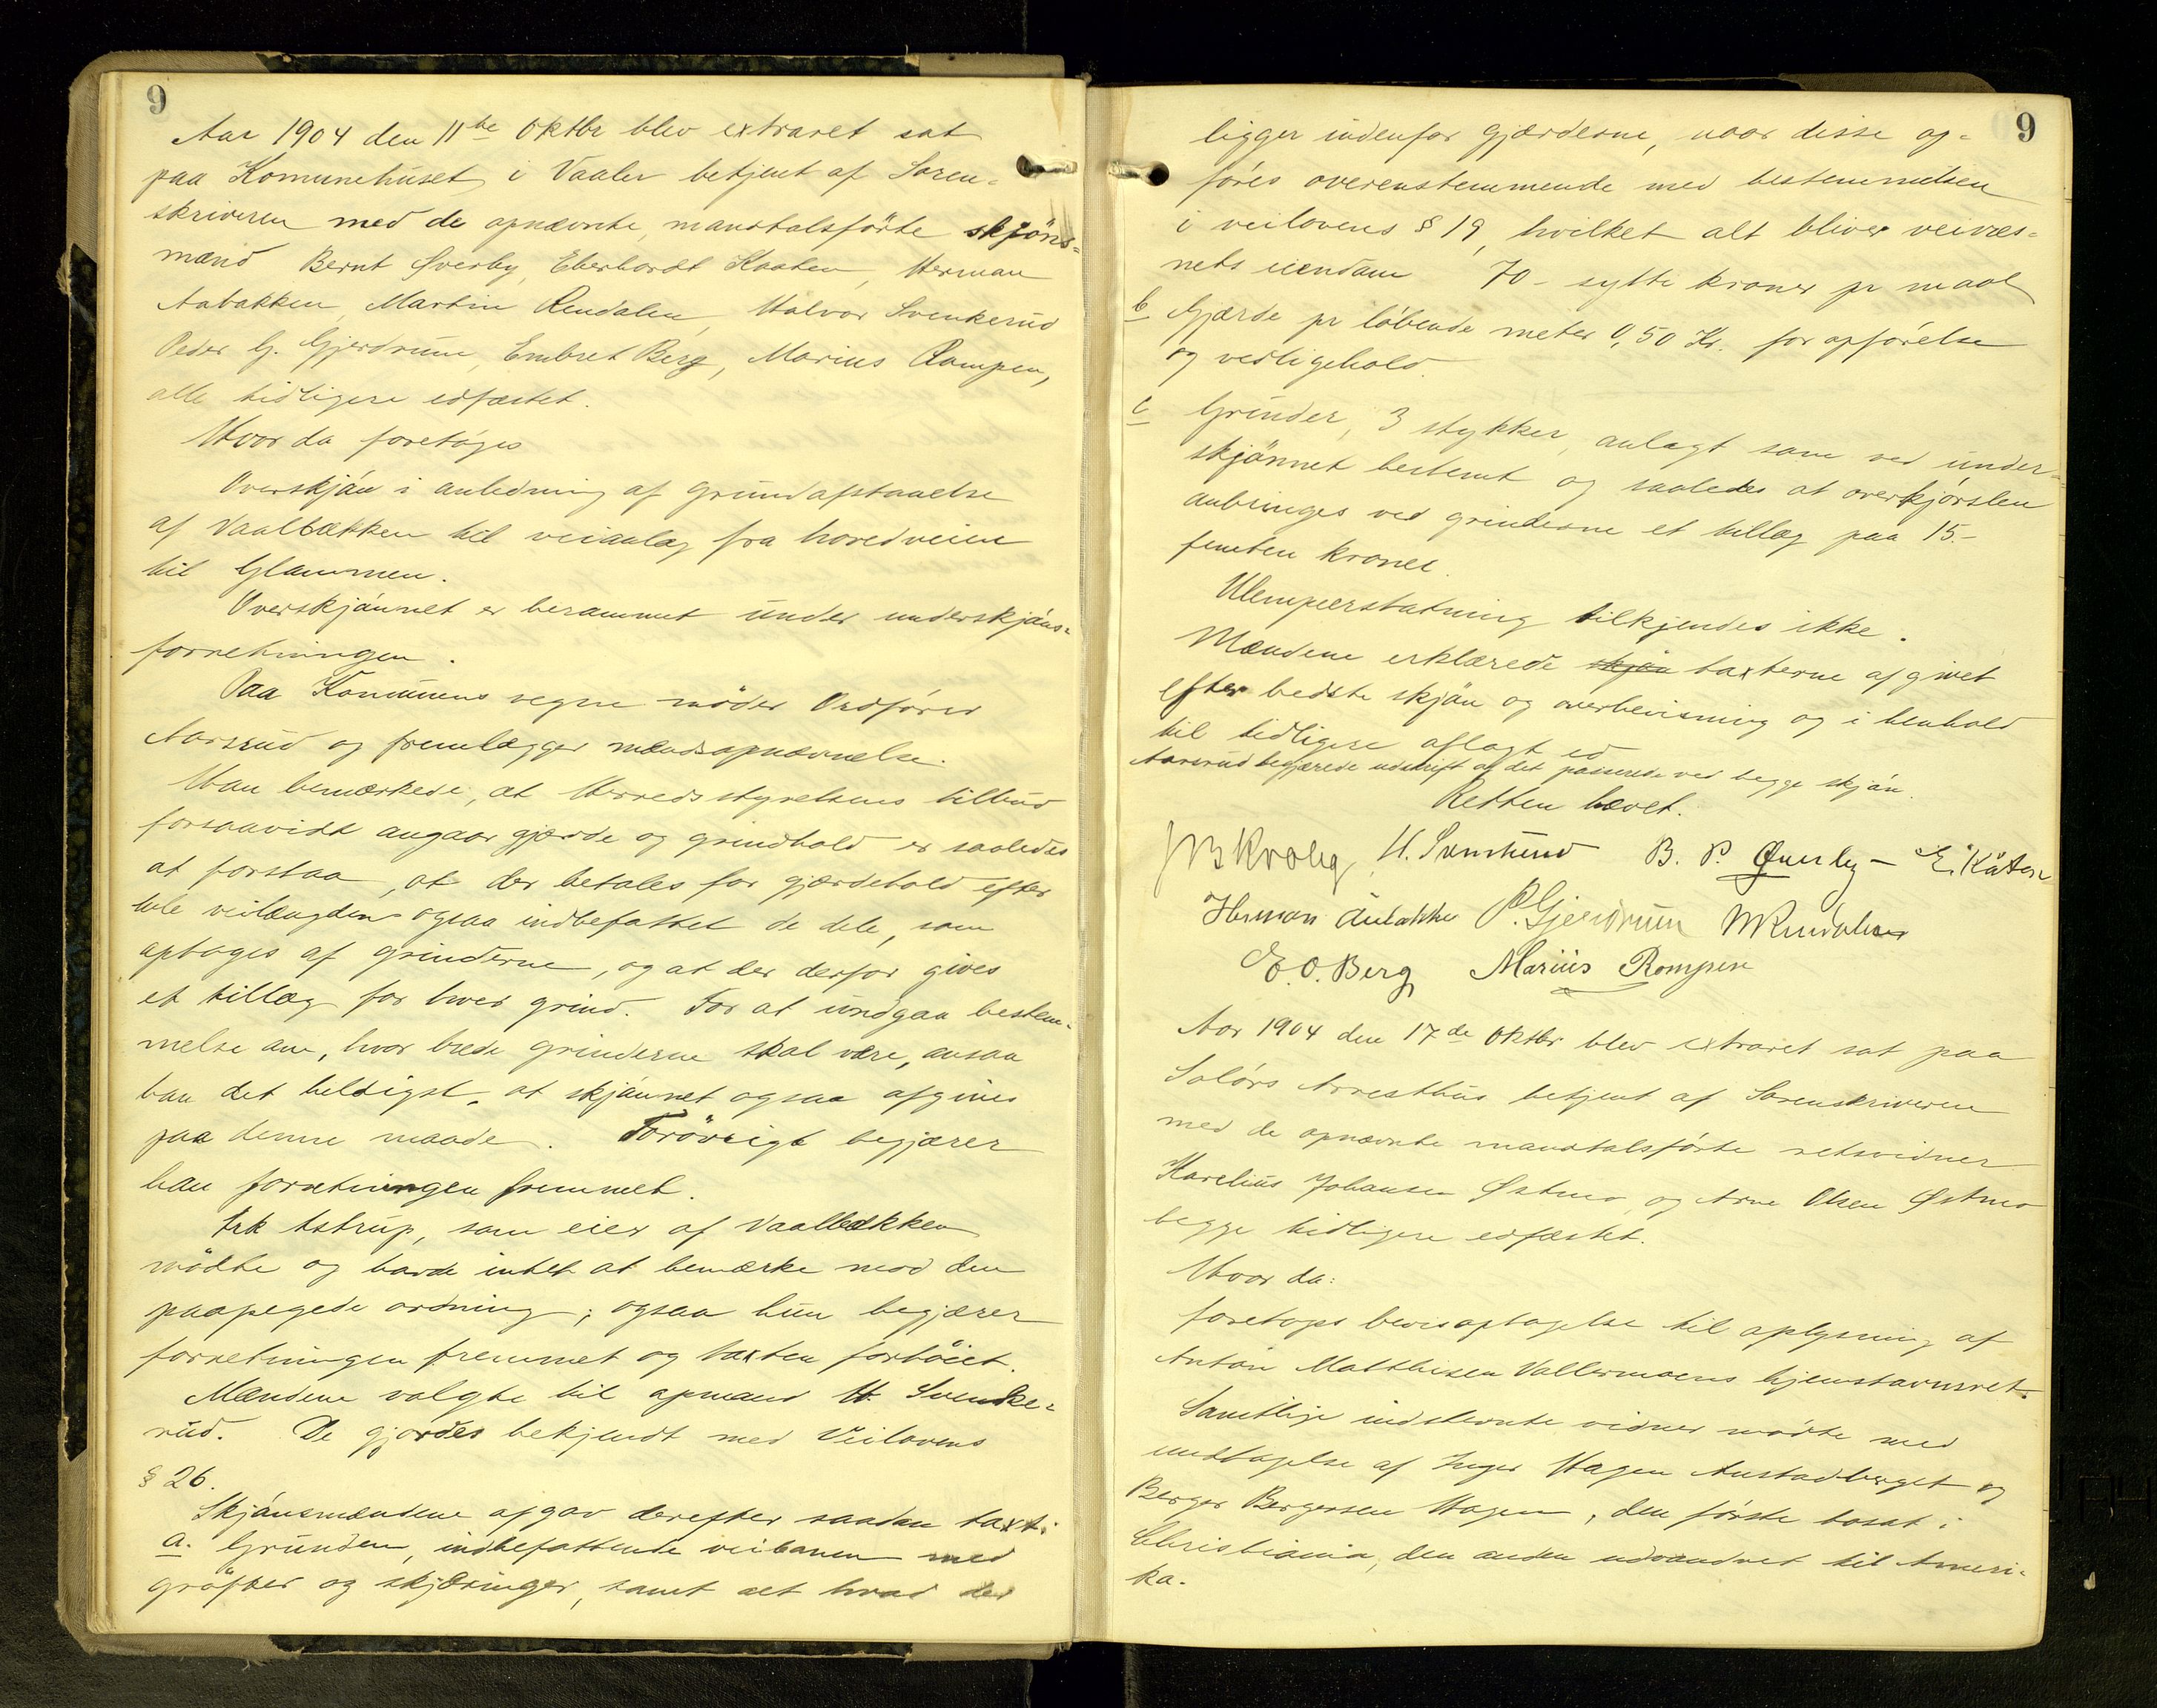 9
Aar 1904 den 11te Oktbr blev extraret sat
paa Komunehuset i Vaaler betjent af Soren-
skriveren med de opnævnte, manstalsförte skjöns-
mænd Bernt Øverby, Eberhardt Kaaten, Herman
Aabakken, Martin Rendalen, Halvor Svenkerud
Peder G. Gjerdrum, Embret Berg, Marius Rampen,
alle tidligere edfæstet.
Hvor da foretoges
Overskjön i anledning af grundafstaaelse
af Vaalbækken til veianlæg fra hovedveien
til Glommen.
Overskjönnet er berammet under underskjöns-
forretningen.
Paa Komunens vegne möder Ordförer
Aarsrud og fremlægger mandsopnævnelse.
Han bemærkede, at Herredsstyrelsens tilbud
forsaavidt angaar gjærde og grindhold er saaledes
at forstaa, at der betales for gjærdehold efter
hele veilængden ogsaa indbefattet de dele, som
optages af grinderne, og at der derfor gives
et tillæg for hver grind. For at undgaa bestem-
melse om, hvor brede grinderne skal være, ansaa
han det heldigst, at skjönnet ogsaa afgives
paa denne maade. Forövrigt begjærer
han forretningen fremmet.
Frk Astrup, som eier af Vaalbækken
mödte og havde intet at bemærke mod den
paapegede ordning; ogsaa hun begjærer
forretningen fremmet og taxten forhöiet.
Mændene valgte til opmand H. Svenke-
rud. De gjordes bekjendt med Veilovens
§ 26.
Skjönsmændene afgav derefter saadan taxt:
a. Grunden, indbefattende veibanen med
gröfter og skjæringer, samt alt hvad der
9
ligger indenfor gjærderne, naar disse op-
föres overenstemmende med bestemmelsen
i veilovens § 19, hvilket alt bliver veivæs-
nets eiendom 70 - sytti kroner pr maal
b Gjærde pr löbende meter 0,50 Kr. for opförelse
og vedligehold.
c Grinder, 3 stykker, anlagt som ved under-
skjönnet bestemt og saaledes at overkjörslen
anbringes ved grinderne et tillæg paa 15.-
femten kroner.
Ulempeerstatning tilkjendes ikke.
Mændene erklærede skjön taxterne afgivet
efter bedste skjön og overbevisning og i henhold
til tidligere aflagt ed
Aarsrud begjærede udskrift af det passerede ved begge skjön.
Retten hævet.
H. Svenkerud B. P. Øverby - E. Kåten
Herman Aabakke P. Gjerdrum M Rendalen
E. O. Berg Marius Rompen
Aar 1904 den 17de Oktbr blev extraret sat paa
Solörs Arresthus betjent af Sorenskriveren
med de opnævnte manstalsförte retsvidner
Karelius Johansen Østmo og Arne Olsen Østmo
begge tidligere edfæstet.
Hvor da:
foretoges bevisoptagelse til oplysning af
Anton Matthisen Vallermoens hjemstavnsret.
Samtlige indstevnte vidner mödte med
undtagelse af Inger Hagen Austadberget og
Berger Bergersen Hagen, den förste bosat i
Christiania, den anden udvandret til Ameri-
ka.